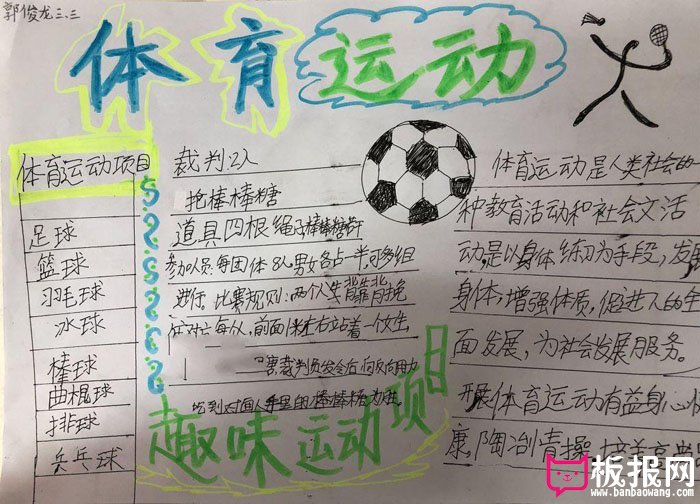 郭俊龙三.三
体育运动
体育运动项目
足球
篮球
羽毛球
冰球
棒球
曲棍球
排球
乒乓球
裁判:2人
抢棒棒糖
道具四根绳子棒棒糖若干
参加人员:每团体8人男女各占一半,可多组
进行。比赛规则:两个人背靠背挽
前面
左右站着一个女生
裁判员发令后向反向用力
吃到对面人手里的棒棒糖为胜
趣味运动项目
体育运动是人类社会的
种教育活动和社会文活
动,是以身体练习为手段,发展
身体,增强体质,促进人的全
面发展,为社会发展服务。
开展体育运动有益身心健
康,陶冶情操,培养高
板报网
www.banbaowang.com